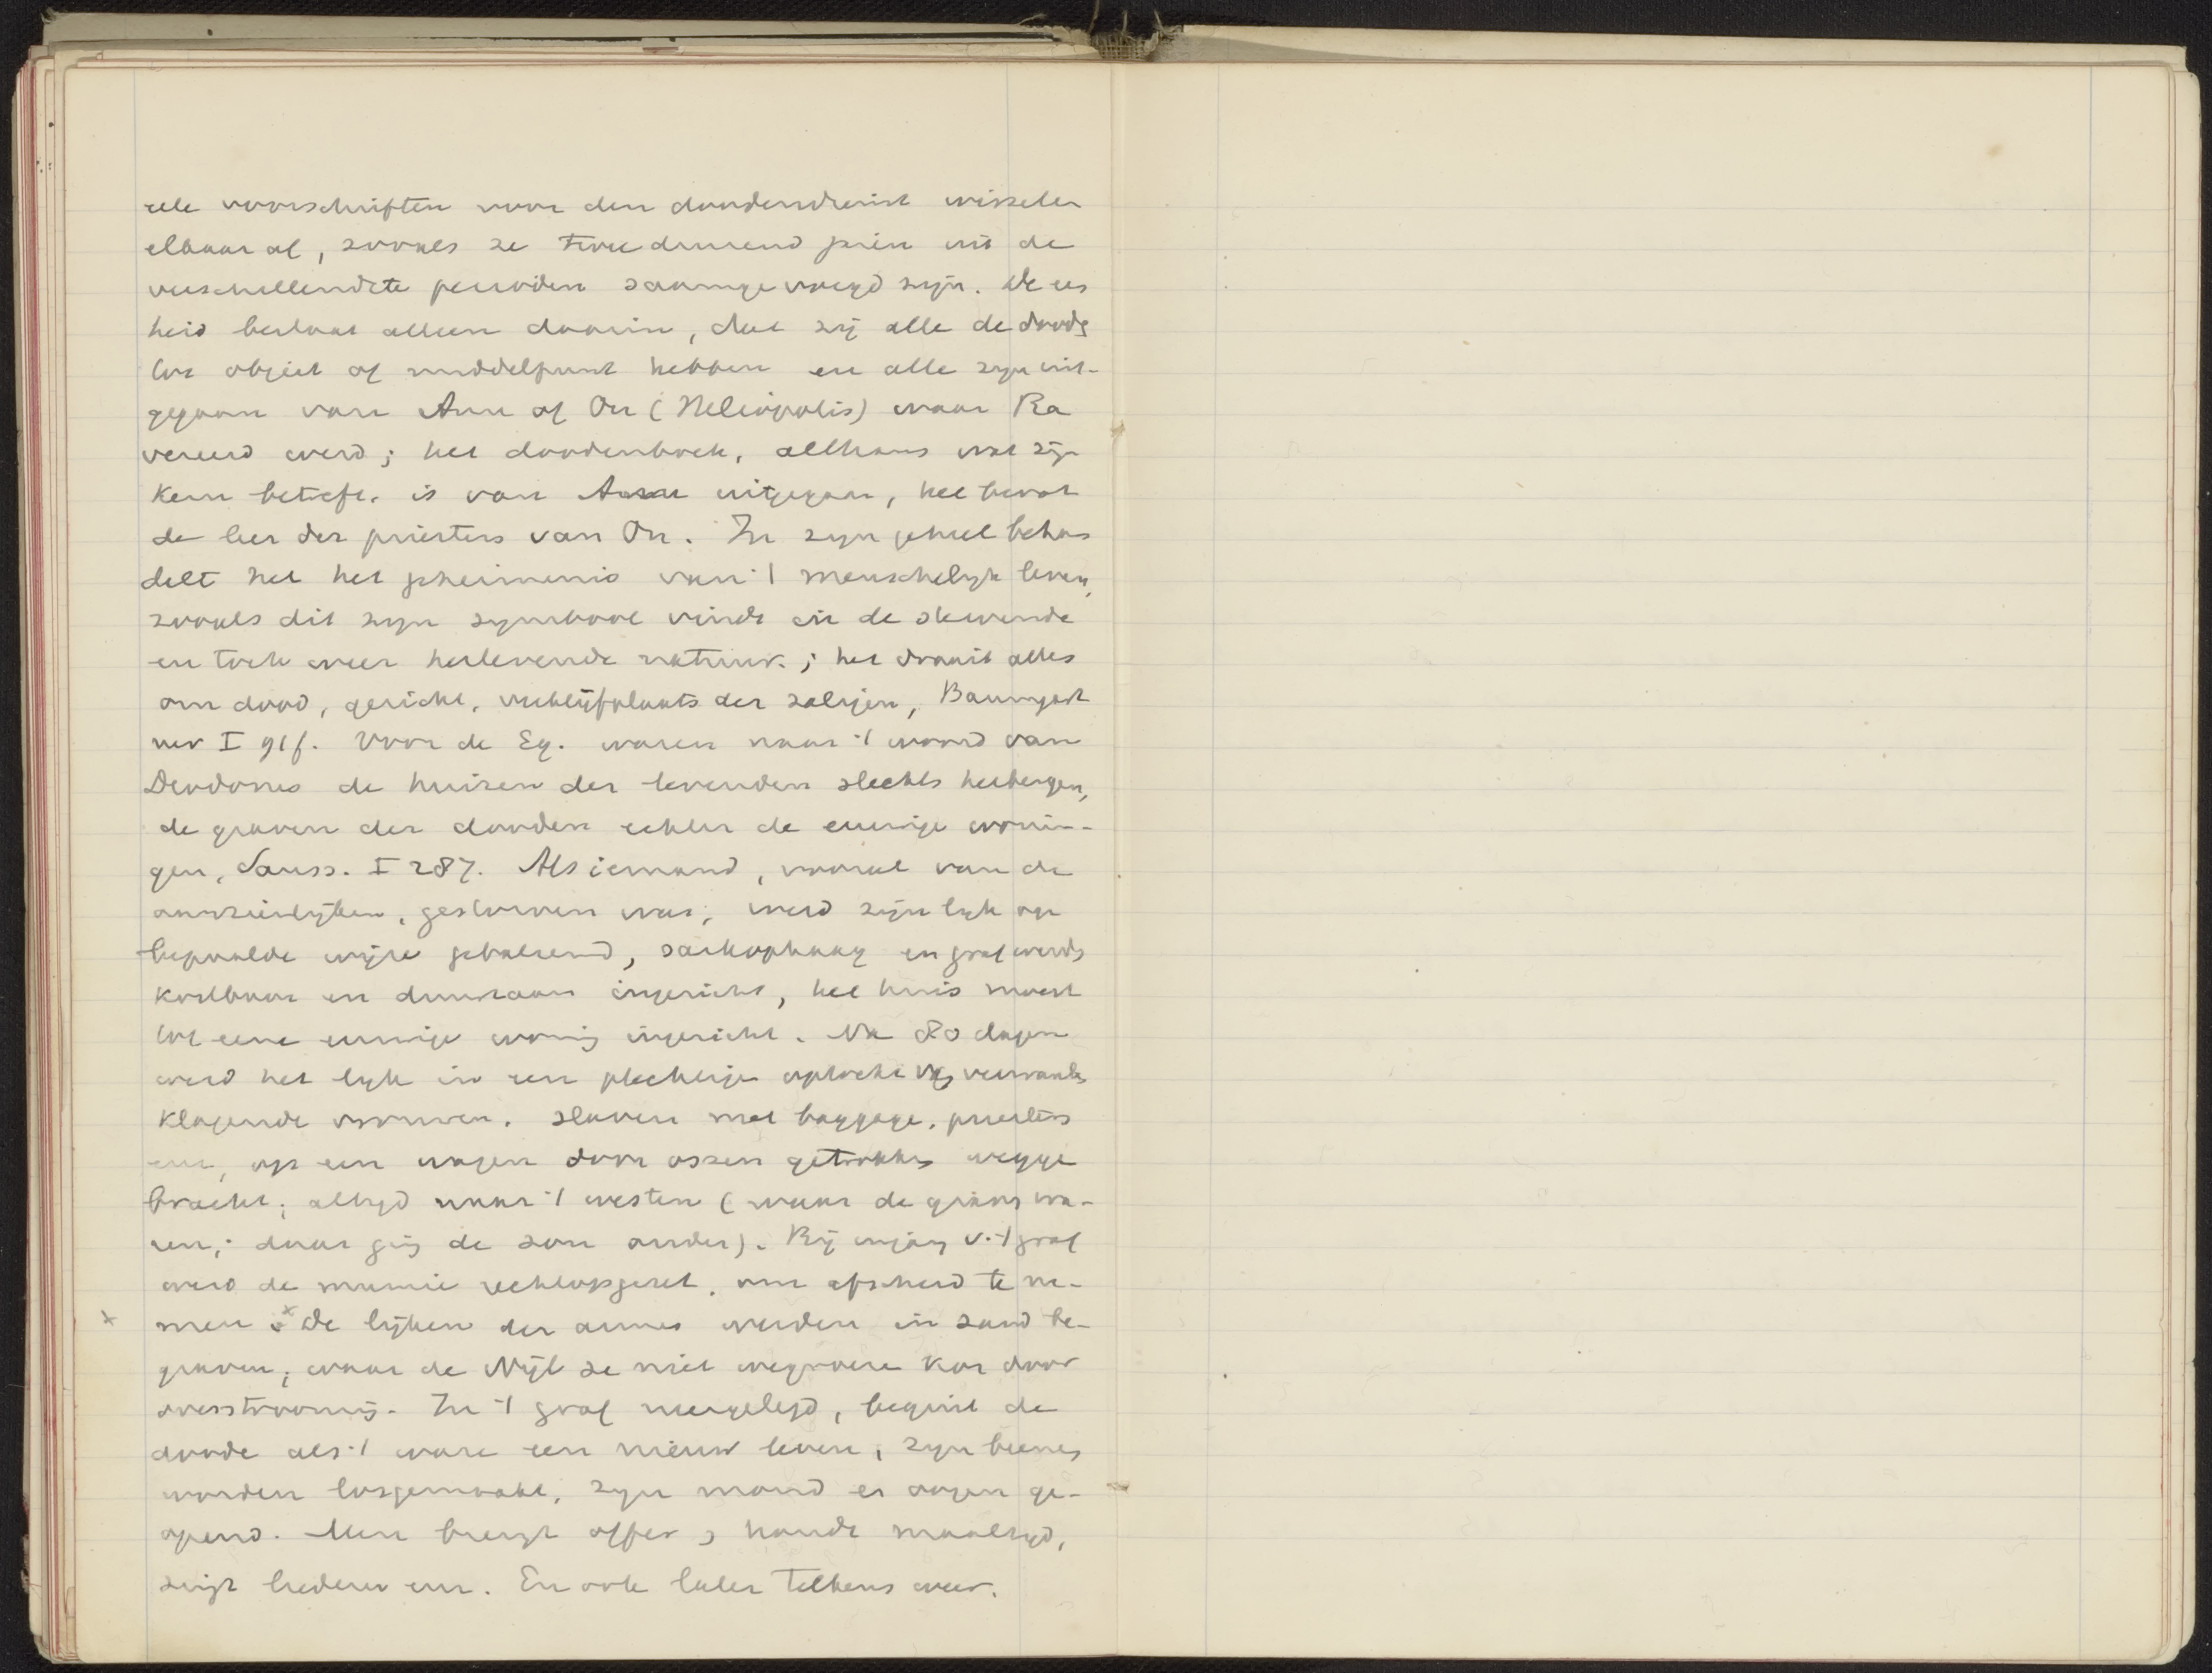 rele voorschriften voor den doodendienst wisselen
elkaar af, zooals ze twee duizend jaren uit de
verschillendste perioden saamgevoegd zijn. De een
heid bestaat alleen daarin, dat zij alle de doods
tot object of middelpunt hebben en alle zijn uit-
gegaan van Anu of On (Heliopolis) waar Ra
vereerd werd; het doodenboek, althans wat zijn
kern betreft. is van Anu uitgegaan, het bevat
de leer der priesters van On. In zijn geheel behan
delt het het geheimenis van 't menschelijk leven,
zooals dit zijn symbool vindt in de stervende
en toch weer herlevende natuur.; het draait alles
om dood, gericht, verblijfplaats der zaligen, Baumgart
ner I 91f. Voor de Eg. waren naar 't woord van
Diodorus de huizen der levenden slechts herbergen,
de graven der dooden echter de eeuwige wonin-
gen, Sauss. I 287. Als iemand, vooral van de
aanzienlijken, gestorven was, werd zijn lijk op
bepaalde wijze gebalsemd, sarkophaag en graf werds
kostbaar en duurzaam ingericht, het huis moest
tot eene eeuwige woning ingericht. Na 80 dagen
werd het lijk in een plechtige optocht van verwants
klagende vrouwen. slaven met baggage, priesters
enz, op een wagen door ossen getrokken wegge
bracht; altijd naar 't westen (waar de graven wa-
ren; daar ging de zon onder). Bij ingang v. 't graf
werd de mumie rechtopgezet, om afscheid te ne-
x men .x De lijken der armen werden in zand be-
graven, waar de Nijl ze niet wegvoeren kon door
overstrooming. In 't graf neergelegd, begint de
doode als 't ware een nieuw leven, zijn beenen
worden losgemaakt, zijn mond en oogen ge-
opend. Men brengt offer, houdt maaltijd,
zingt liederen enz. En ook later telkens weer.